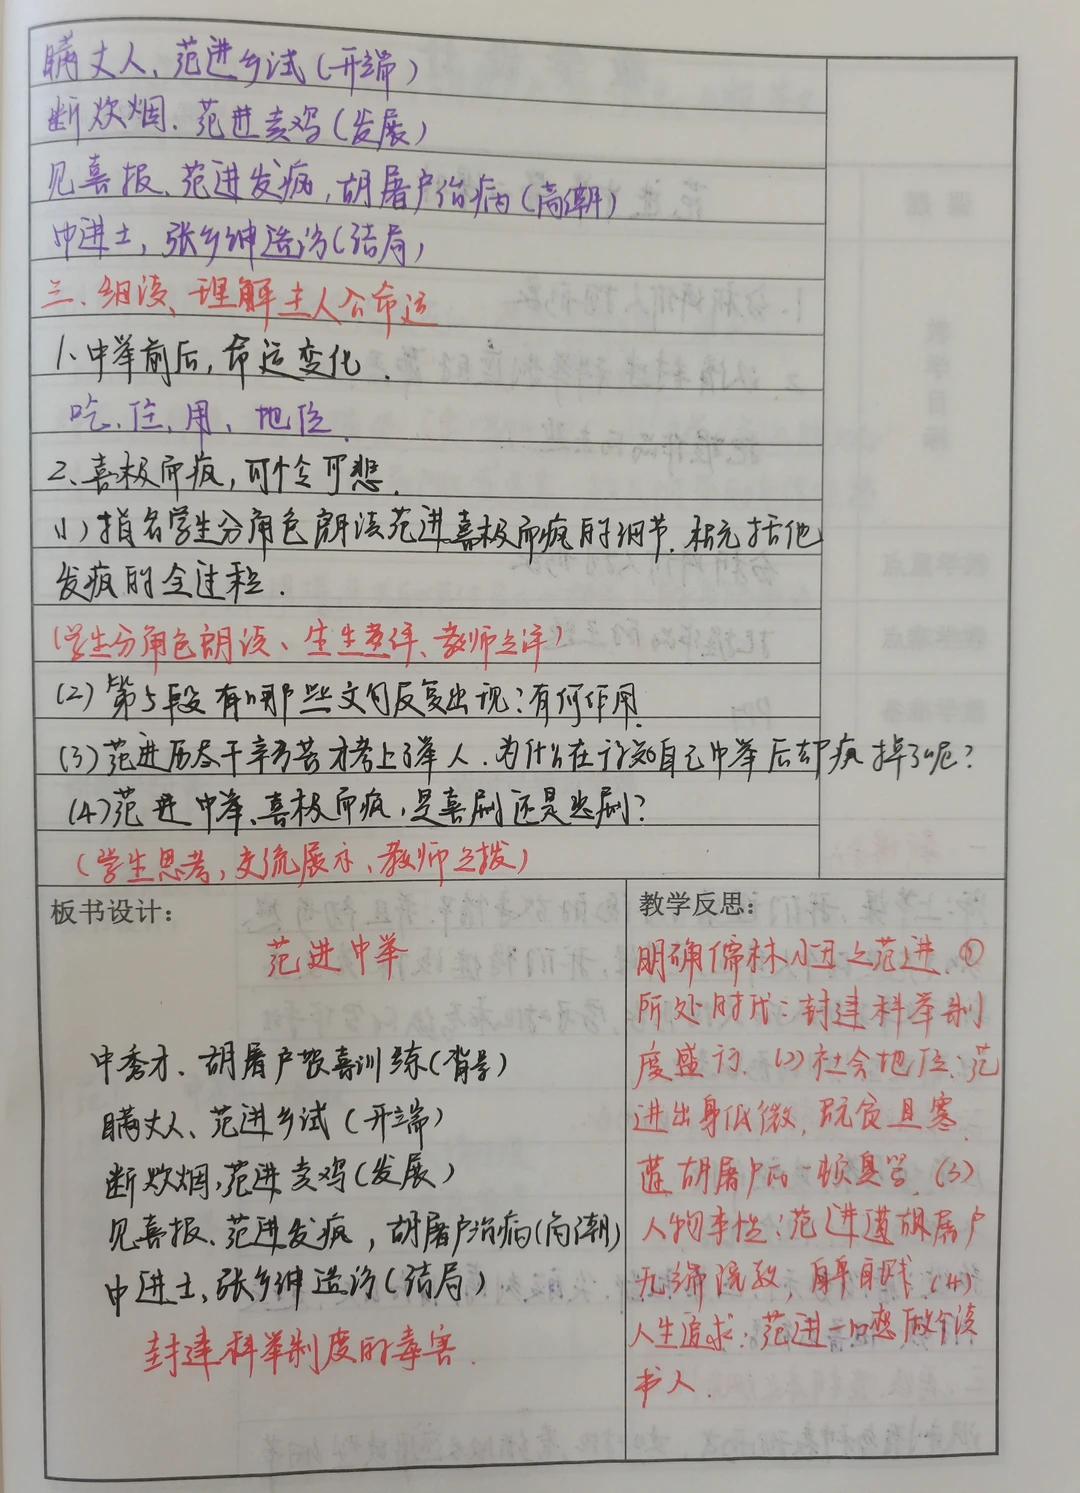 瞒丈人、范进乡试(开端)
断炊烟、范进卖鸡(发展)
见喜报、范进发疯,胡屠户治病(高潮)
中进士,张乡绅造访(结局)
三、细读、理解主人公命运
1、中举前后,命运变化.
吃、住、用、地位.
2、喜极而疯,可怜可悲.
(1)指名学生分角色朗读范进喜极而疯的细节.概括他
发疯的全过程.
(学生分角色朗读、生生互评、教师点评)
(2)第5段有哪些文句反复出现?有何作用
(3)范进历尽千辛万苦才考上了举人.为什么在得知自己中举后却疯掉了呢?
(4)范进中举、喜极而疯,是喜剧还是悲剧?
(学生思考,交流展示、教师点拨)
板书设计:
范进中举
中秀才、胡屠户贺喜训练(背景)
瞒丈人、范进乡试(开端)
断炊烟,范进卖鸡(发展)
见喜报、范进发疯,胡屠户治病(高潮)
中进士,张乡绅造访(结局)
封建科举制度的毒害.
教学反思:
明确儒林小丑之范进.①
所处时代:封建科举制
度盛行.(2)社会地位:范
进出身低微,既贫且寒.
遭胡屠户的一顿臭骂.(3)
人物本性:范进遭胡屠户
无端
人生追求:范进一心想做个读
书人.